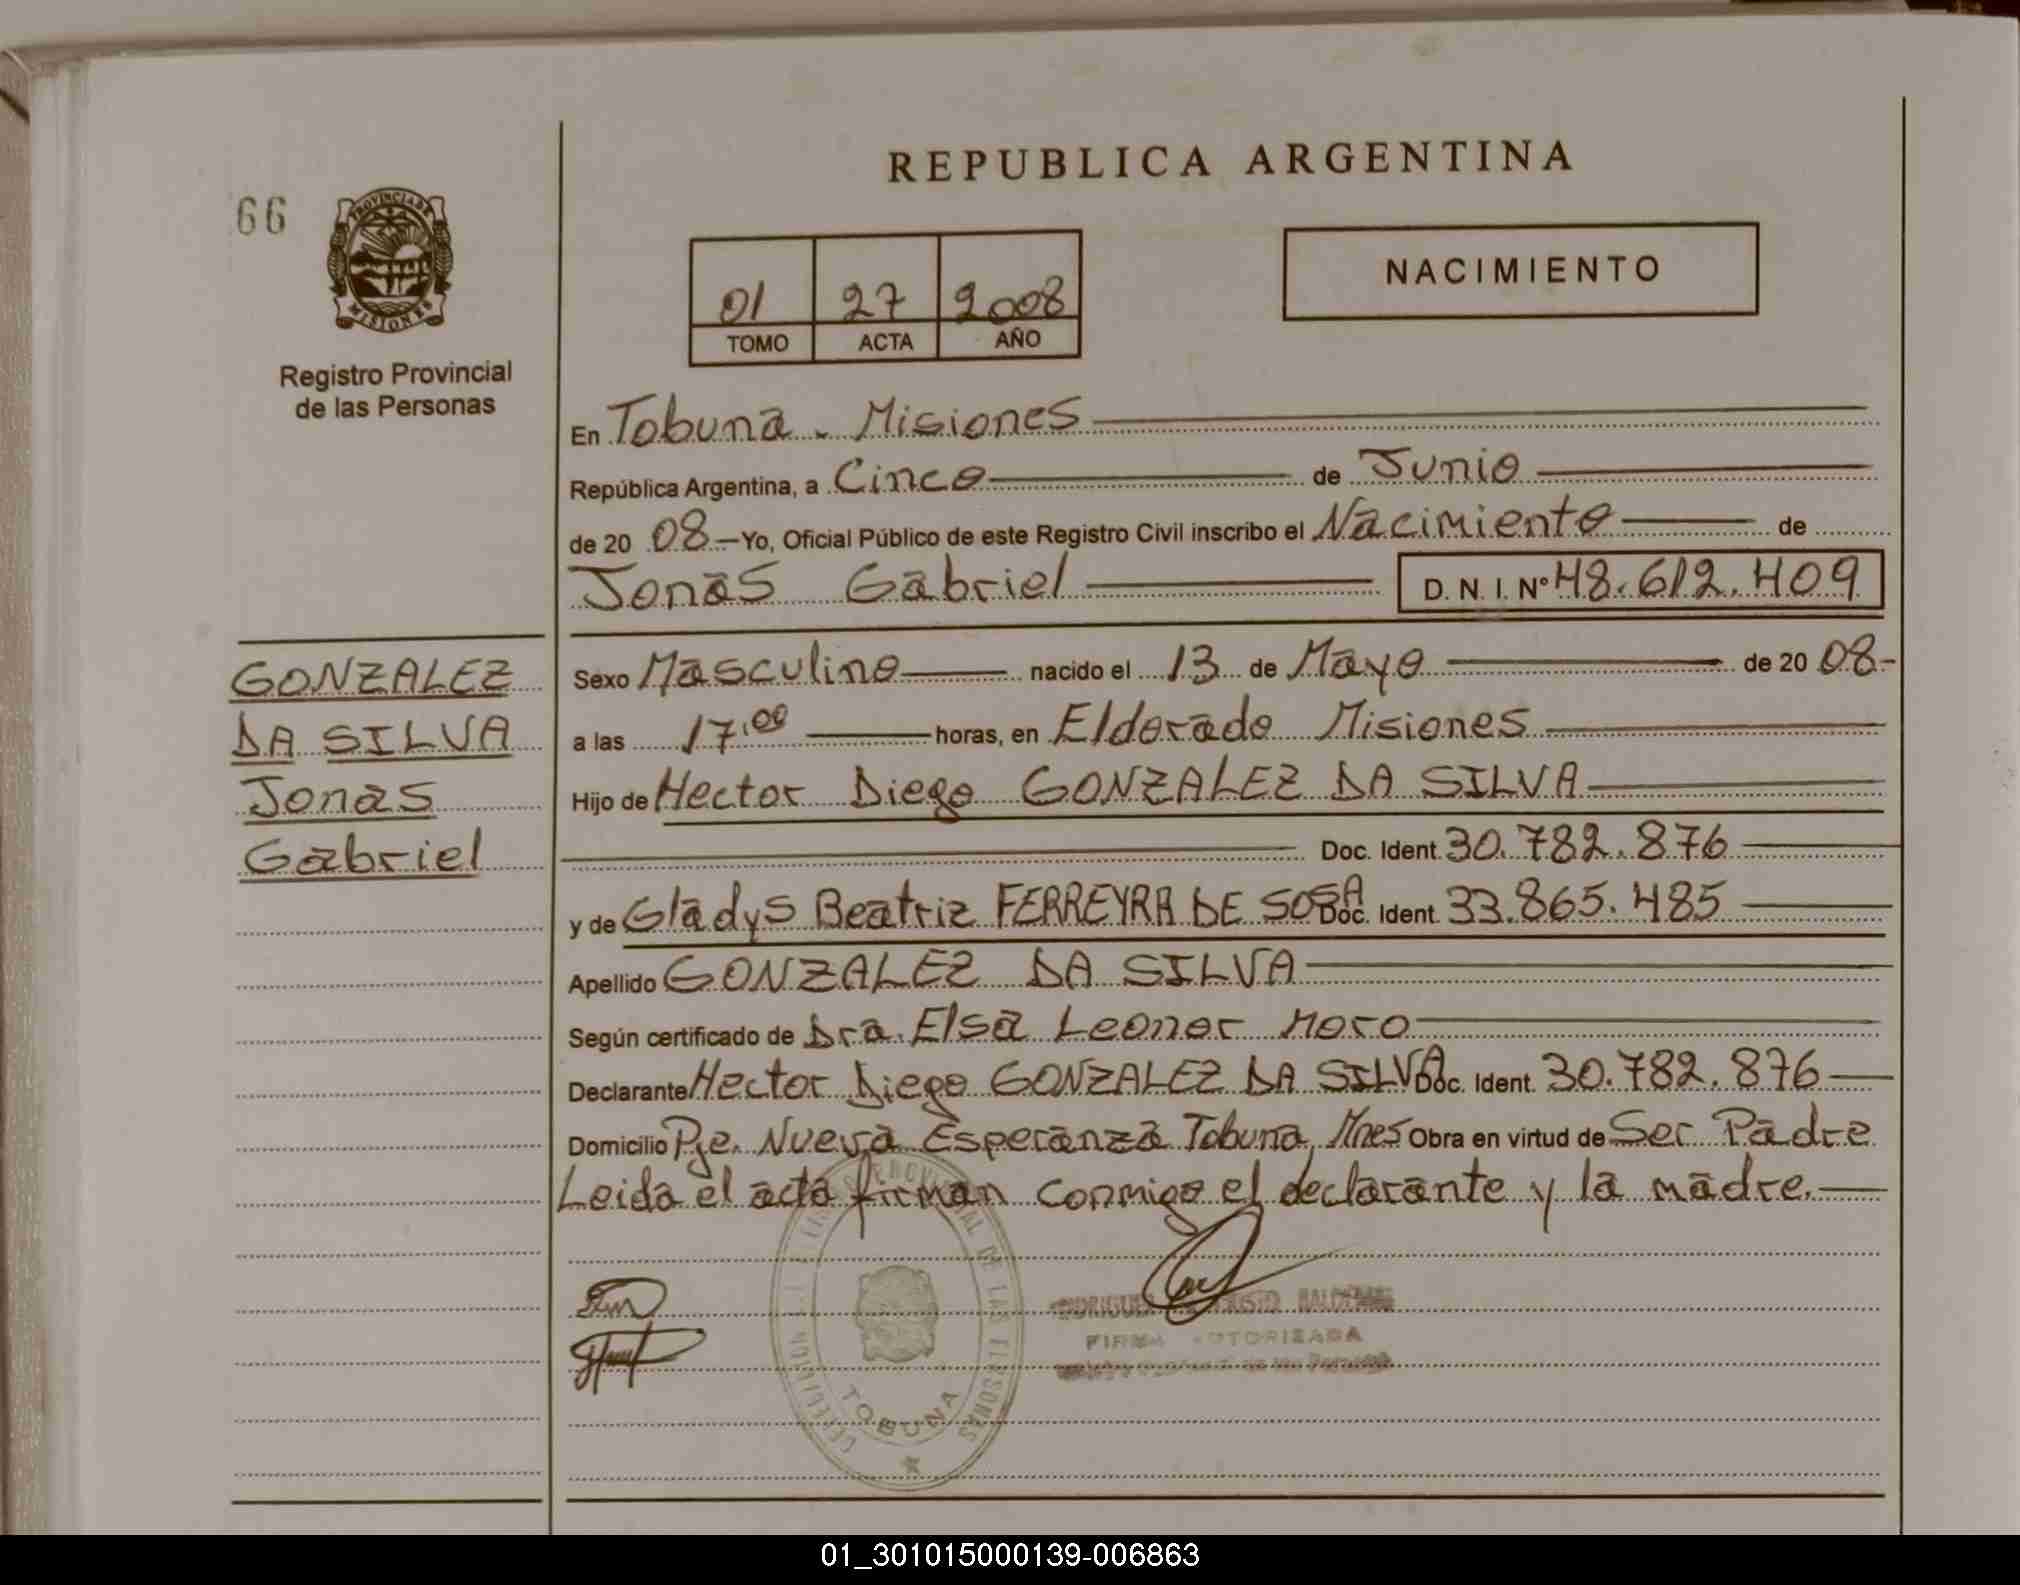 REPUBLICA ARGENTINA
66
PROVINCIA DE
MISIONES
Registro Provincial
de las Personas
01 27 2008
TOMO ACTA AÑO
NACIMIENTO
En Tobuna. Misiones
República Argentina, a Cinco de Junio
de 20 08 Yo, Oficial Público de este Registro Civil inscribo el Nacimiento de
Jonas Gabriel D. N. I. Nº 48.612.409
GONZALEZ
DA SILVA
Jonas
Gabriel
Sexo Masculino nacido el 13 de Mayo de 20 08-
a las 17,00 horas, en Eldorado Misiones
Hijo de Hector Diego GONZALEZ DA SILVA
Doc. Ident. 30.782.876
y de Gladys Beatriz FERREYRA DE SOSA Doc. Ident. 33.865.485
Apellido GONZALEZ DA SILVA
Según certificado de Dra. Elsa Leonor Moro
Declarante Hector Diego GONZALEZ DA SILVA Doc. Ident. 30.782.876
Domicilio Pje. Nueva Esperanza Tobuna, Mnes Obra en virtud de Ser Padre
Leida el acta firman conmigo el declarante y la madre.
FIRMA AUTORIZADA
DE LAS PERSONAS
TOBUNA
01_301015000139-006863